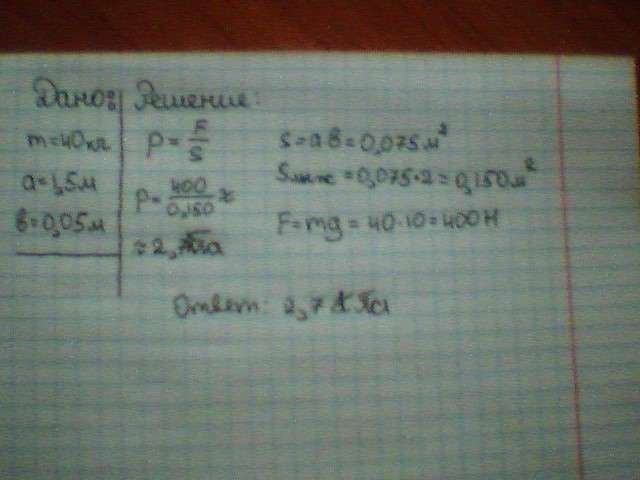 Дано:
m=40кг
a=1,5м
в=0,05м
Решение:
p=F/S
p=400/0,150≈
≈2,7кПа
S=aв=0,075м²
Sлыж=0,075·2=0,150м²
F=mg=40·10=400Н
Ответ: 2,7кПа